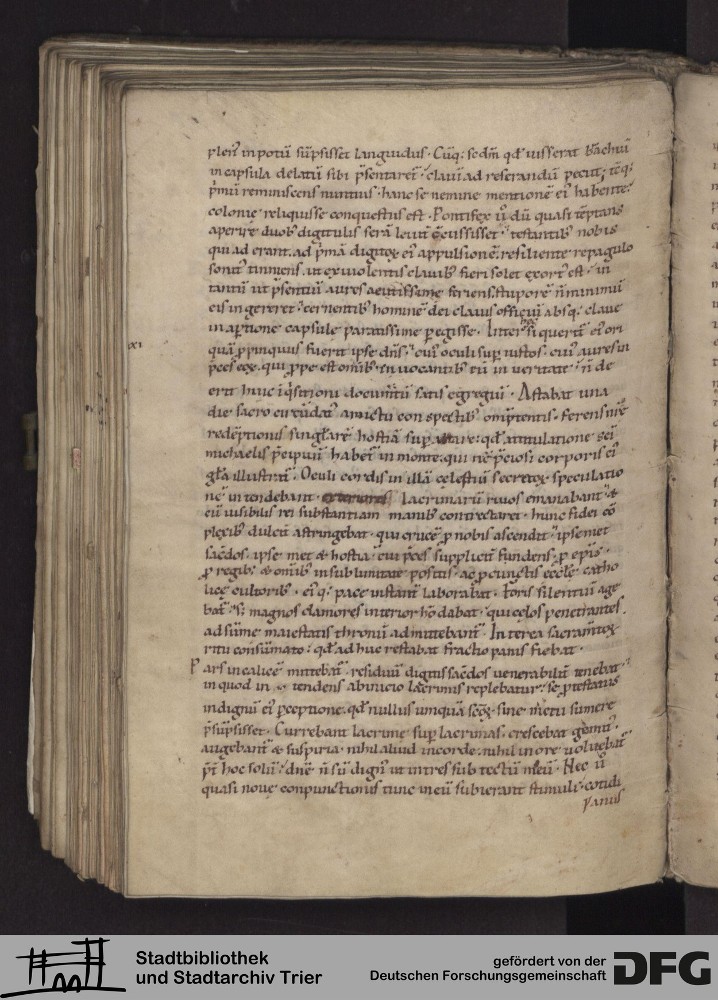 plerꝰ in potũ sũpsisset languidus. Cũq; scdm qd̃ iusserat
in capsula delatũ sibi p̃sentaret᷑. clauẽ ad reserandũ peciit;
p̃mũ reminiscens nuntius. hanc se nemine mentionẽ ei habente.
colonie reliquisse conquestus est. Pontifex ũ dũ quasi tẽptans
aperire duobꝰ digitulis serã leuit᷑ testantibꝰ nobis
qui aderant. ad p̃mã digitoꝝ eiꝰ appulsionẽ. resiliente repagulo
sonitꝰ tinniens. ut ex uiolentis clauibꝰ fieri solet exortꝰ est. in
tantũ ut p̃sentiũ aures acutissime feriens. stuporẽ ñ minimũ
eis ingereret. cernentibꝰ hominẽ dei clauis officiũ absq; claue
in aptione capsule paratissime pegisse.
xi
quã ꝓpinquus fuerit ipse dñs. cuiꝰ oculi sup iustos. cuiꝰ aures in
p̃ces eoꝝ. qui ꝓpe est om̃ibꝰ inuocantibꝰ eũ in ueritate. ñ de
erit huic inq̃sitioni documẽtũ satis egregiũ. Astabat una
die sacro circũdatꝰ amictu conspectibꝰ omp̃tentis. ferens nr̃e
redẽptionis singularẽ hostiã sup altare. qd̃ titulatione sc̃i
michaelis p̃cipuũ habet᷑ in monte. qui p̃ciosi corporis eiꝰ
gl̃a illustrat᷑. Oculi cordis in illã celestiũ secretoꝝ speculatio
nẽ intendebant. exteriores lacrimarũ riuos emanabant. &
cũ uisibilis rei substantiam manibꝰ contrectaret. hunc fidei cõ
plexibꝰ dulcit᷑ astringebat. qui crucẽ ꝓ nobis ascendit. ipsemet
sacerdos. ipsemet & hostia. cui p̃ces supplicit᷑ fundens. ꝓ ep̃is.
ꝓ regibꝰ. & om̃ibꝰ in sublimitate positis. ac ꝓ cunctis eccl̃e catho
lice cultoribꝰ. eiq; pace instant᷑ laborabat. Foris silentiũ age
bat᷑. s; magnos clamores interior hõ dabat. qui celos penetrantes.
ad sũme maiestatis thronũ admittebant᷑. Interea sacram̃toꝝ
ritu consũmato. qd̃ adhuc restabat fractio panis fiebat.
Pars in calicẽ mittebat᷑. residuũ digitis sacerdos uenerabilit᷑ tenebat.
in quod intendens ab inicio lacrimis replebatur. se ꝓtestatus
indignũ eiꝰ pceptione. qd̃ nullus umquã sc̃oꝝ. sine metu sumere
p̃sũpsisset. Currebant lacrime sup lacrimas. crescebat gemitꝰ.
augebant᷑ & suspiria. nihil aliud in corde. nihil in ore uoluebat᷑
p̃t hoc solũ. dñe ñ sũ dignꝰ ut intres sub tectũ meũ. Nec ũ
quasi noue conpunctionis tunc in eũ subierant stimuli. cotidi
anus
Stadtbibliothek
und Stadtarchiv Trier
gefördert von der
Deutschen Forschungsgemeinschaft
DFG